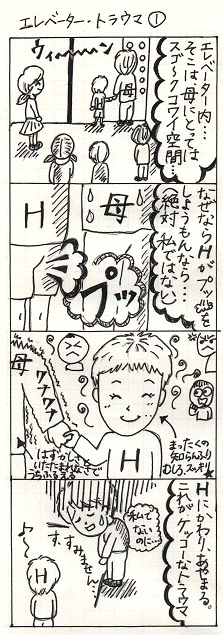 エレベーター・トラウマ①
エレベーター内…
そこは母にとっては
スゴ～クコワイ空間…
ウィ～～～ン
母
なぜならHがプッを
しようもんなら…
(絶対私ではない)
母
H
プッ
母
ワナワナ
H
まったくの
知らんふり
むしろ、スッキリ
はずかしさと
いたたまれなさで
うちふるえる
Hにかわりあやまる。
これがケッコーなトラウマ
私で
ないのに…
す、すみません…
H